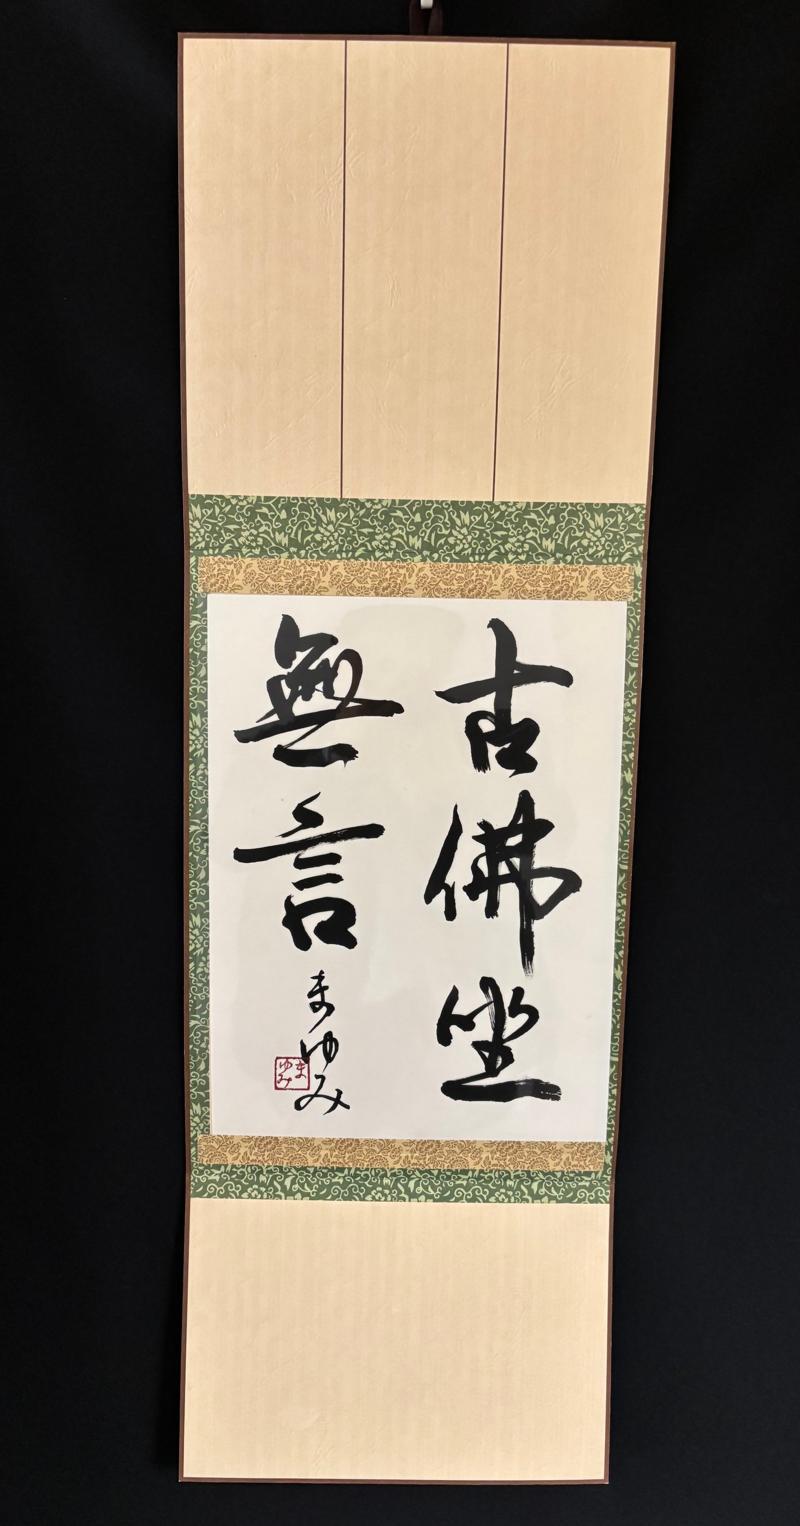 古佛坐
無言
まゆみ
まゆみ